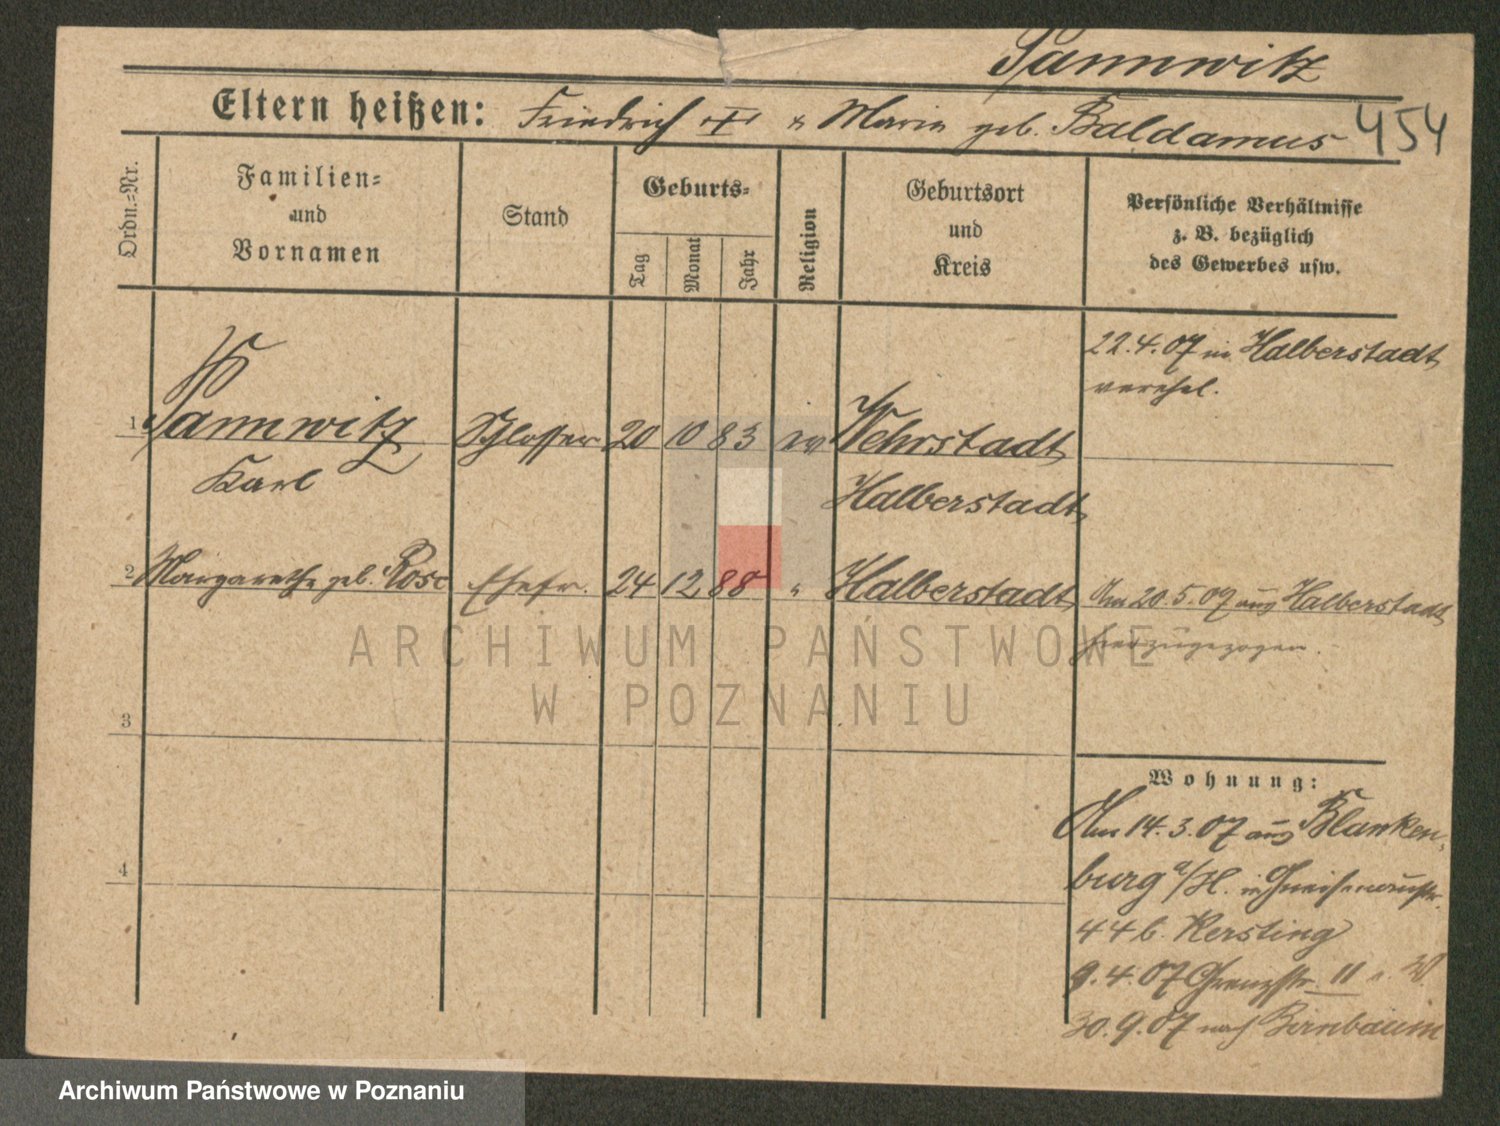 Pannwitz
Eltern heißen: Friedrich ✝ u Marie geb. Baldamus 454
Ordn.=Nr.
Familien=
und
Vornamen
Stand
Geburts=
Tag
Monat
Jahr
Religion
Geburtsort
und
Kreis
Persönliche Verhältnisse
z. B. bezüglich
des Gewerbes usw.
22.4.07 in Halberstadt
verehel.
1 Pannwitz Schlosser 20 10 83 ev Wehrstadt
Karl Halberstadt
2 Margarethe geb. Rose Ehefr. 24 12 88 " Halberstadt Am 20.5.07 aus Halberstadt
hierzugezogen.
ARCHIWUM PAŃSTWOWE
W POZNANIU
3
Wohnung:
Am 14.3.07 aus Blanken-
burg a/H. in Gneisenaustr.
4
44 b. Kersting
9.4.07 Grenzstr. 11
30.9.07 nach Birnbaum
Archiwum Państwowe w Poznaniu